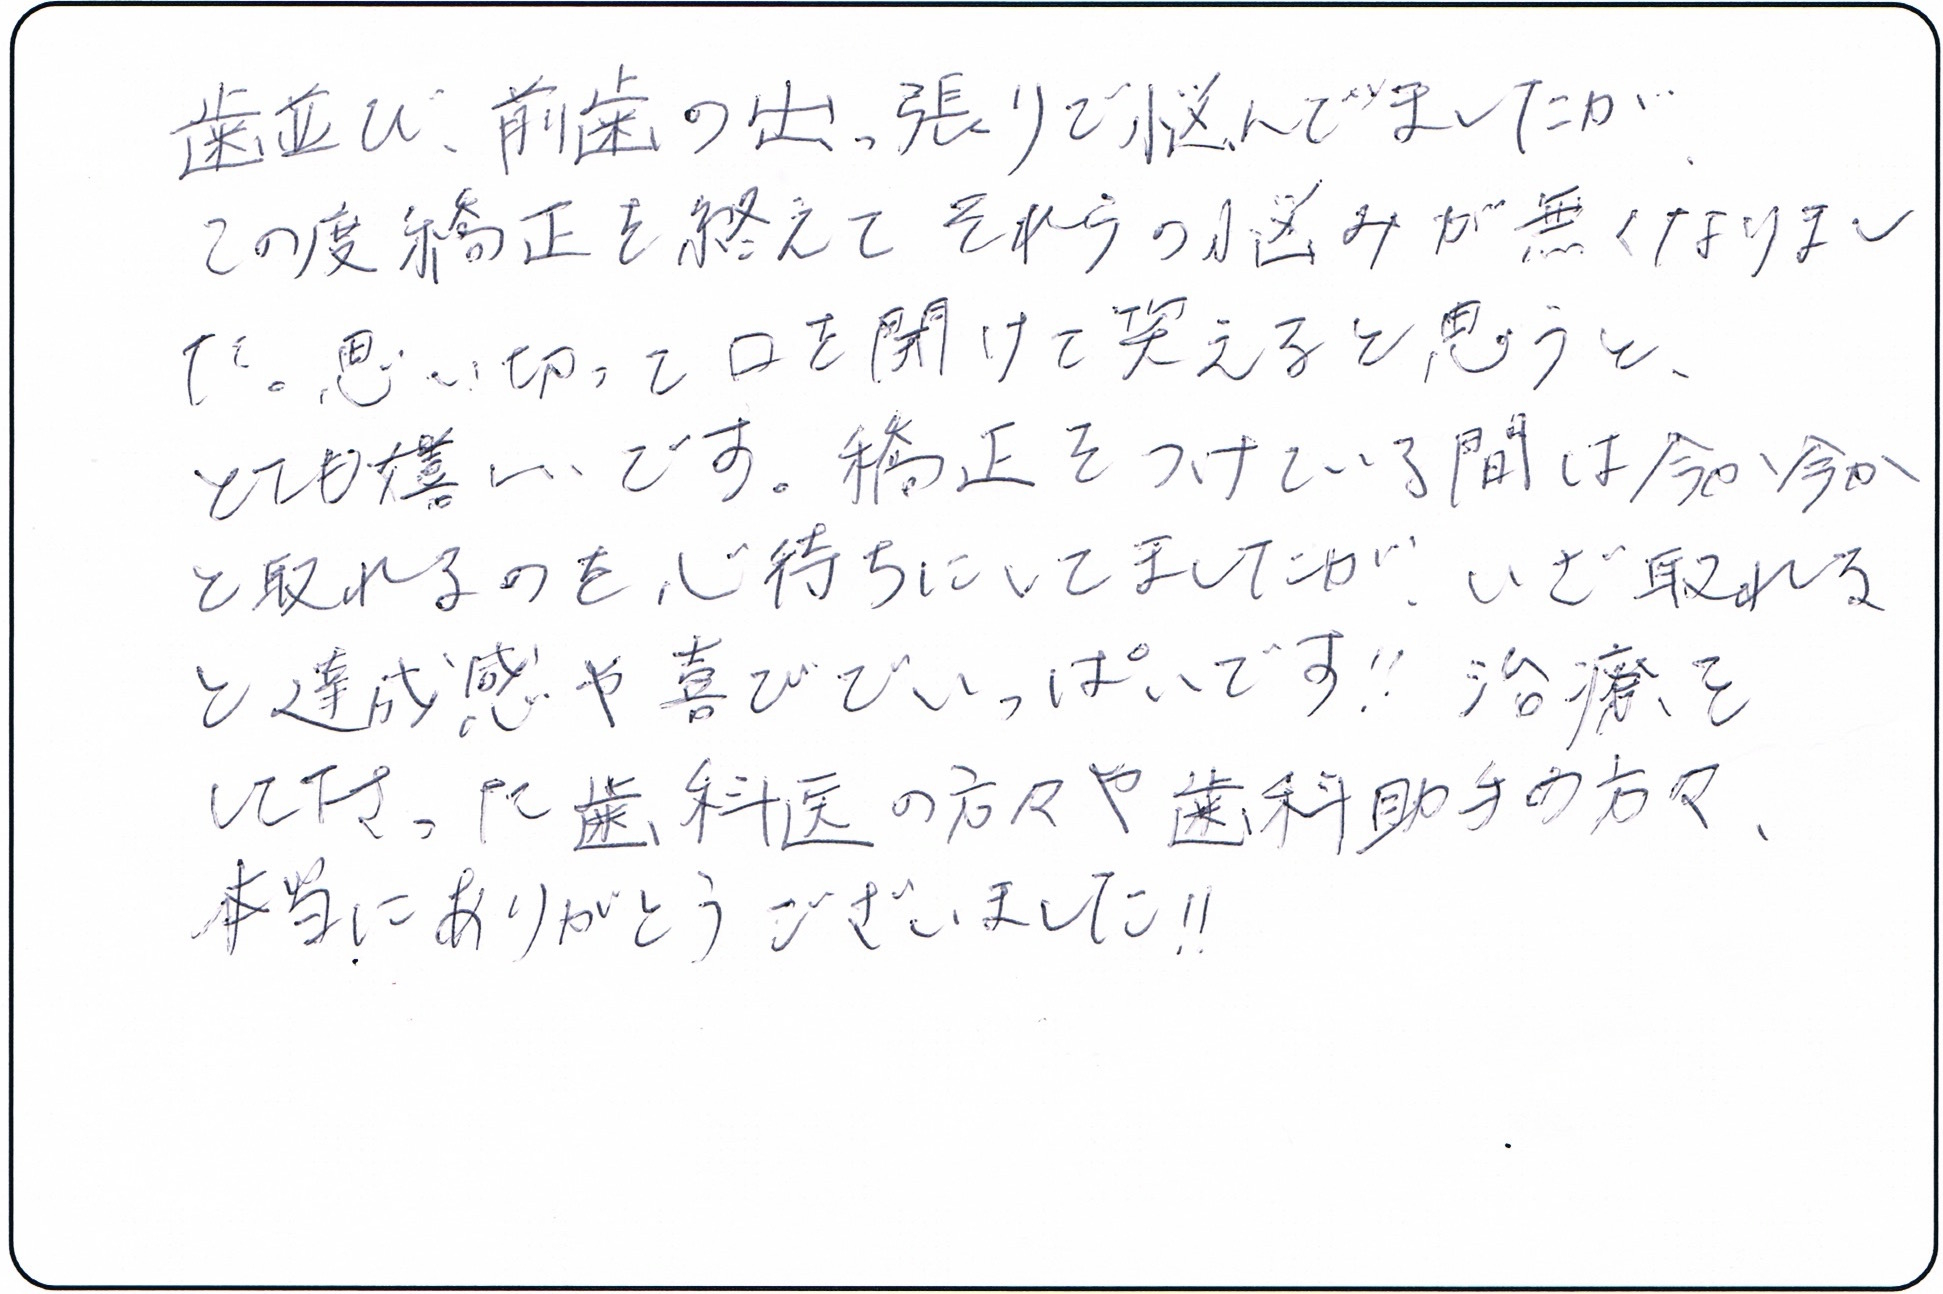 歯並び、前歯の出っ張りで悩んでましたが、
この度矯正を終えてそれらの悩みが無くなりまし
た。思い切って口を開けて笑えると思うと、
とても嬉しいです。矯正をつけている間は今か今か
と取れるのを心待ちにしてましたが、いざ取れる
と達成感や喜びでいっぱいです!! 治療を
して下さった歯科医の方々や歯科助手の方々、
本当にありがとうございました!!